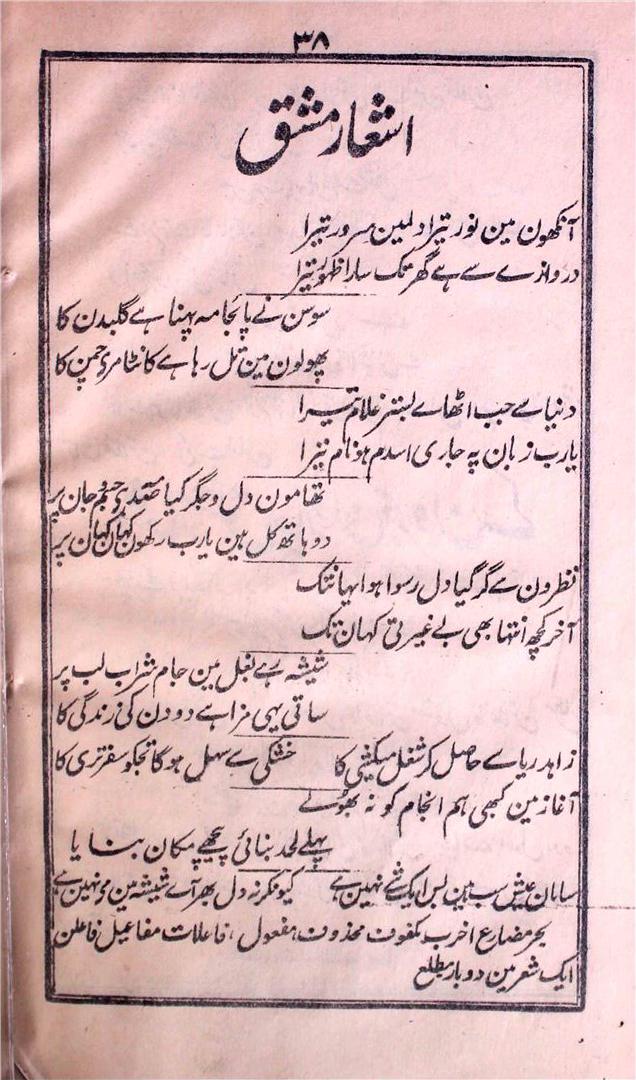 ۳۸
اشعار مشق
آنکھون مین نور تیرا دلمین سرور تیرا
دروازے سے ہے گھر تک سارا ظہور تیرا
سوسن نے پائجامہ پہنا ہے گلبدن کا
پھولون مین تل رہا ہے کانٹا مری چمن کا
دنیا سے جب اٹھاے بستر غلام تیرا
یارب زبان پہ جاری اسدم ہو نام تیرا
تھامون دل و جگر کیا صدمہ ہی جسم و جان پر
دو ہاتھ کل ہین یارب رکھون کہان کہان پر
نظرون سے گر گیا دل رسوا ہوا یہانتک
آخر کچھ انتہا بھی بے غیرتی کہان تک
شیشہ رہے بغل مین جام شراب لب پر
ساقی یہی مزا ہے دو دن کی زندگی کا
زاہد ریا سے حاصل کر شغل میکشی کا خشکی سے سہل ہوگا تجکو سفر تری کا
آغاز مین کبھی ہم انجام کو نہ بھولے
پہلے لحد بنائی پیچھے مکان بنایا
سامان عیش سب ہین بس ایک شے نہین ہے کیونکر نہ دل بھر آے شیشہ مین مے نہین ہے
بحر مضارع اخرب مکفوف محذوف، مفعول، فاعلات مفاعیل فاعلن
ایک شعر مین دوبار مطلع